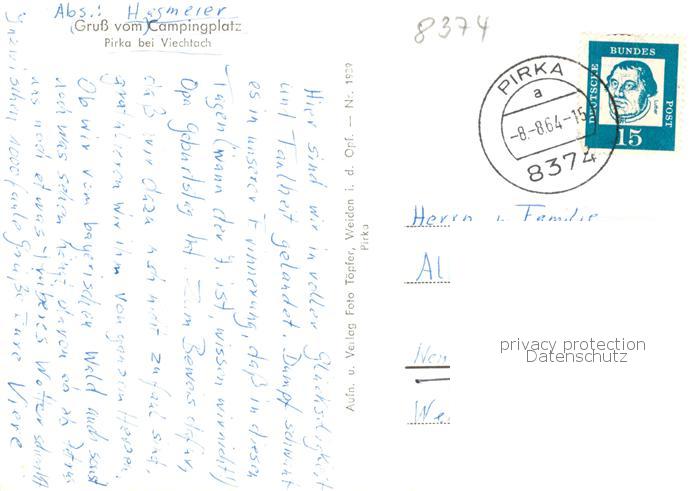 Abs.: Hagmeier
Gruß vom Campingplatz
Pirka bei Viechtach
Hier sind wir in voller Glückseligkeit
und Faulheit gelandet. Dumpf schwirrt
es in unserer Erinnerung, daß in diesen
Tagen (wann der 7. ist, wissen wir nicht!)
Opa Geburtstag hat. Zum Beweis dafür,
daß wir dazu noch nicht zu faul sind,
gratulieren wir ihm von ganzem Herzen.
Ob wir vom bayerischen Wald auch sonst
noch was sehen hängt davon ab ob Petrus
uns noch etwas trüberes Wetter schickt
Inzwischen noch faule Grüße Eure Viere
Aufn. u. Verlag Foto Töpfer, Weiden i. d. Opf. — Nr. 1939
Pirka
8374
PIRKA
a
-8.-8.64-15
8374
DEUTSCHE
BUNDES
POST
Luther
15
Herrn u. Familie
Al
We
privacy protection
Datenschutz